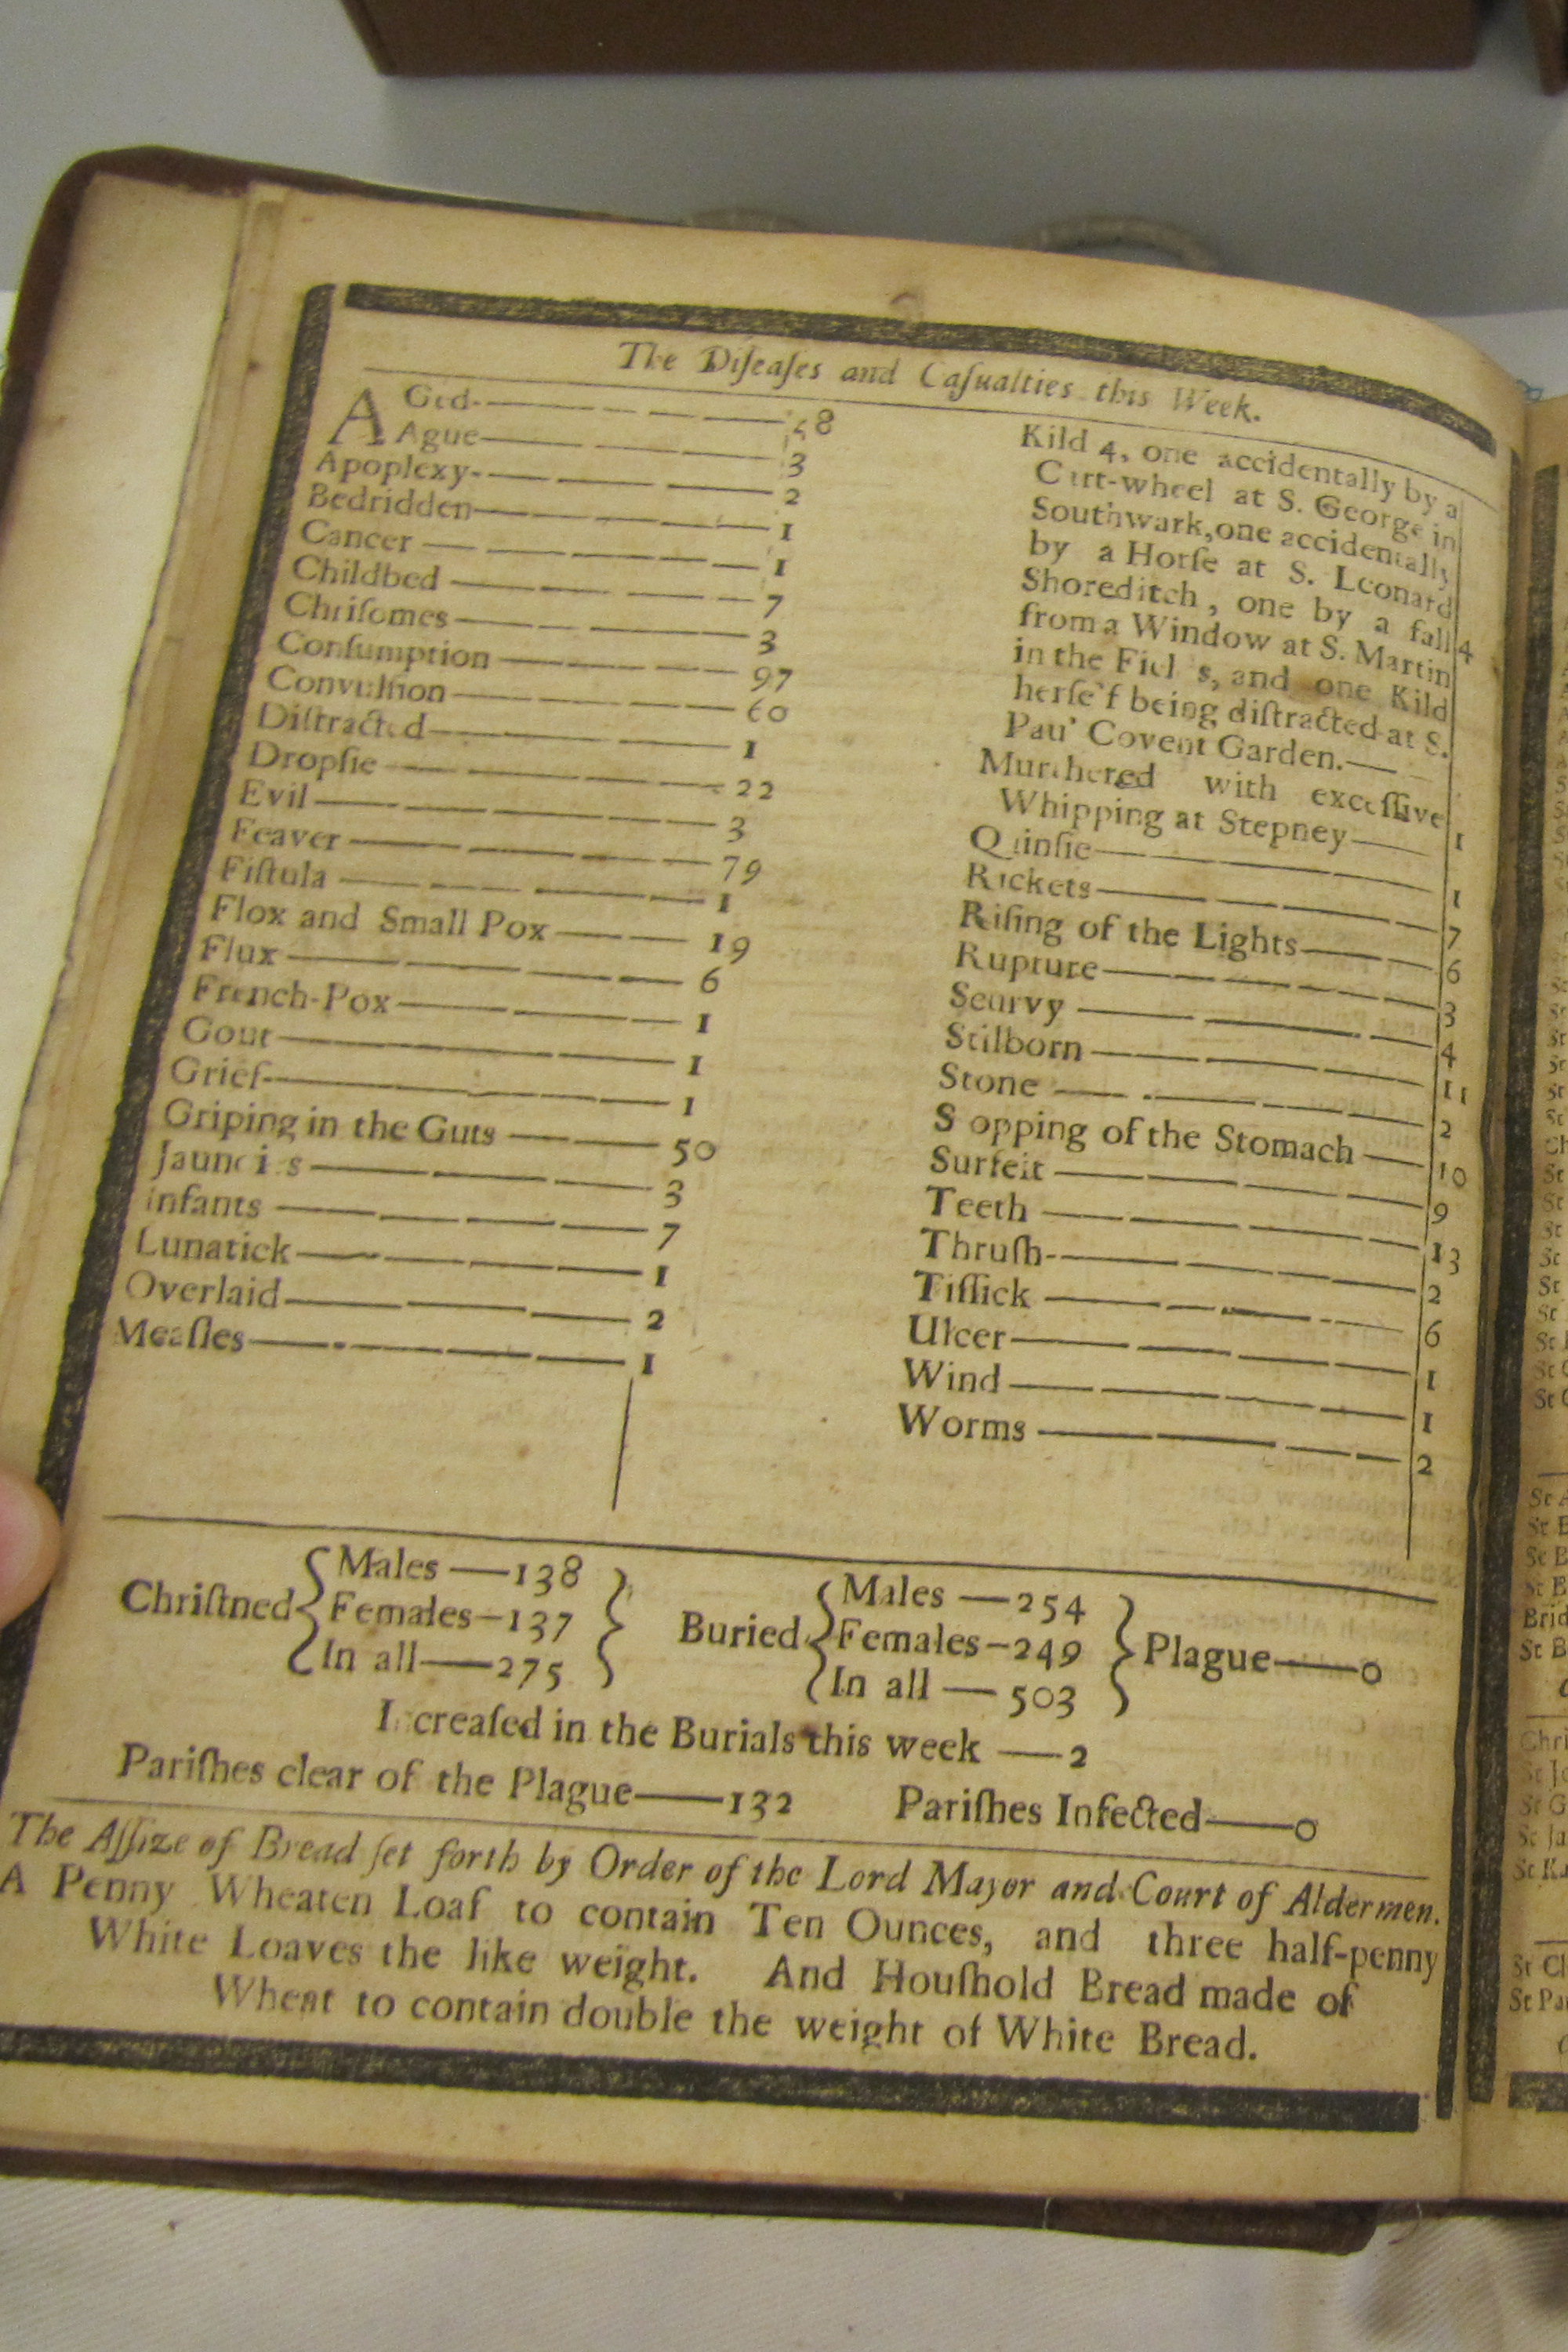 The Diſeaſes and Caſualties this Week.
AGed 48
Ague 3
Apoplexy 2
Bedridden 1
Cancer 1
Childbed 7
Chriſomes 3
Conſumption 97
Convulſion 60
Diſtracted 1
Dropſie 22
Evil 3
Feaver 79
Fiſtula 1
Flox and Small Pox 19
Flux 6
French-Pox 1
Gout 1
Grief 1
Griping in the Guts 50
Jaundies 3
Infants 7
Lunatick 1
Overlaid 2
Meaſles 1
Kild 4, one accidentally by a
Cart-wheel at S. George in
Southwark, one accidentally
by a Horſe at S. Leonard
Shoreditch, one by a fall
from a Window at S. Martin
in the Fields, and one Kild
herſelf being diſtracted at S.
Paul Covent Garden. 4
Murthered with exceſſive
Whipping at Stepney 1
Quinſie 1
Rickets 7
Riſing of the Lights 6
Rupture 3
Scurvy 4
Stilborn 11
Stone 2
Stopping of the Stomach 10
Surfeit 9
Teeth 13
Thruſh 2
Tiſſick 6
Ulcer 1
Wind 1
Worms 2
Chriſtned { Males — 138
Females — 137
In all — 275 }
Buried { Males — 254
Females — 249
In all — 503 } Plague — 0
Increaſed in the Burials this week — 2
Pariſhes clear of the Plague — 132 Pariſhes Infected — 0
The Aſſize of Bread ſet forth by Order of the Lord Mayor and Court of Aldermen.
A Penny Wheaten Loaf to contain Ten Ounces, and three half-penny
White Loaves the like weight. And Houſhold Bread made of
Wheat to contain double the weight of White Bread.